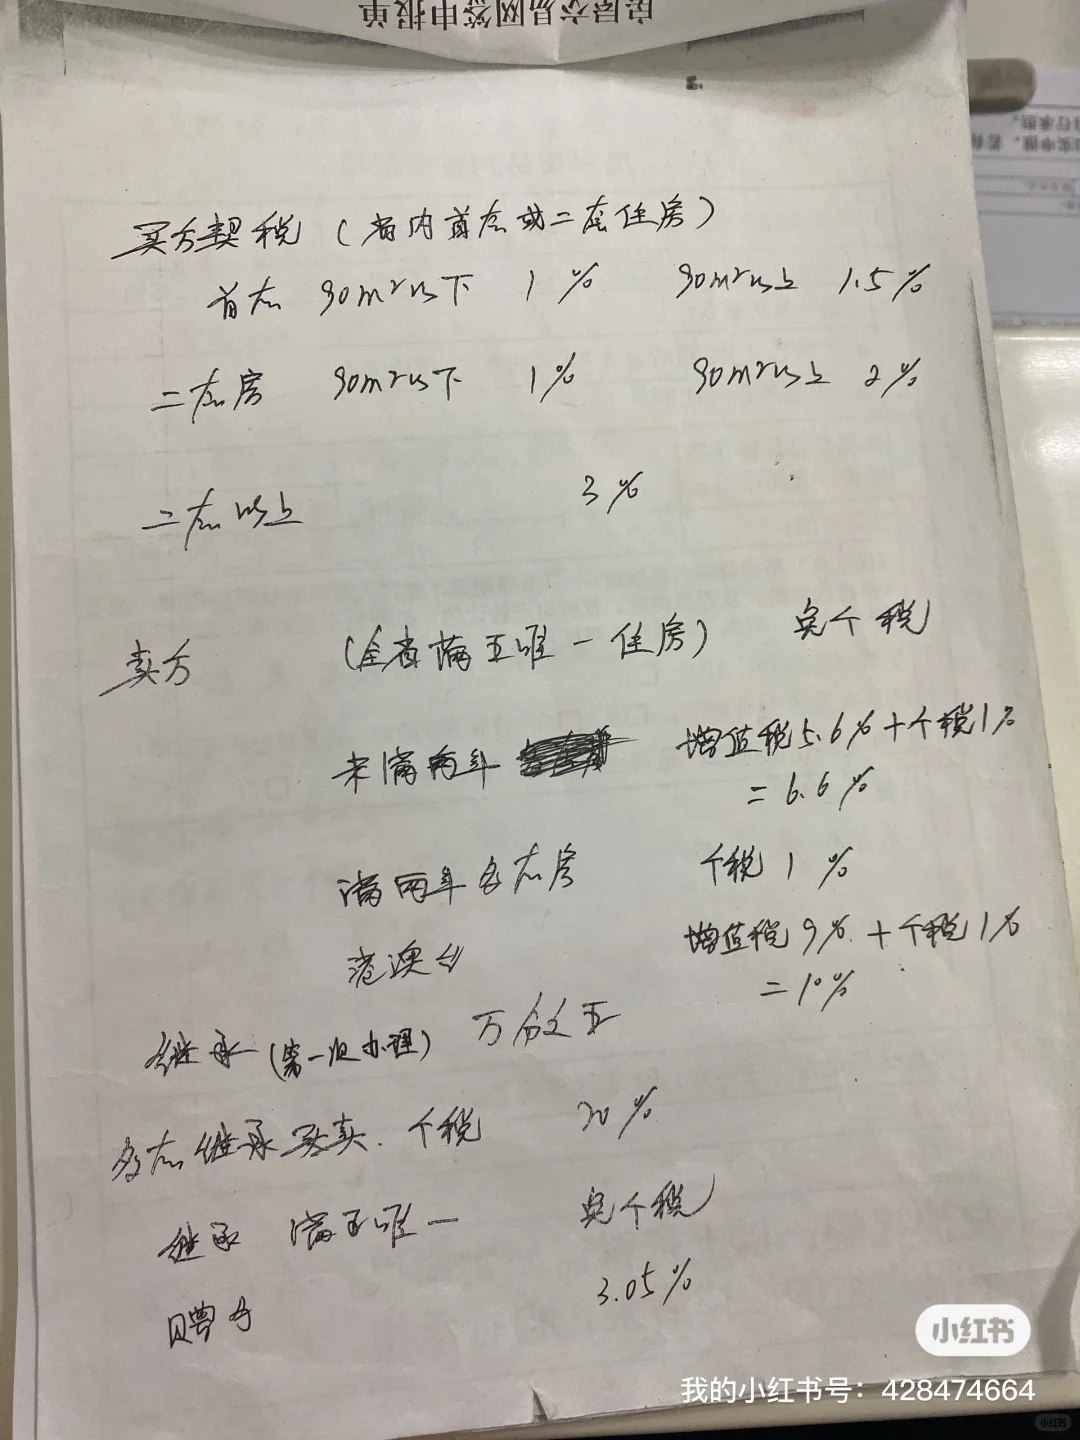 房屋交易网签申报单
买方契税（省内首套或二套住房）
首套 90m²以下 1% 90m²以上 1.5%
二套房 90m²以下 1% 90m²以上 2%
二套以上 3%
卖方 (全省满五唯一住房) 免个税
未满两年 增值税5.6%+个税1%
=6.6%
满两年多套房 个税1%
港澳台 增值税9%+个税1%
=10%
继承(第一次办理) 万分之五
多套继承买卖.个税 20%
继承 满五唯一 免个税
赠与 3.05%
小红书
我的小红书号：428474664
小红书